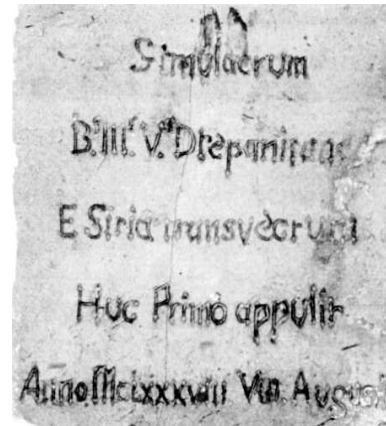 Simulacrum
B. M. V. Drepanitanae
E Siria transvectum
Huc Primò appulit
Anno August